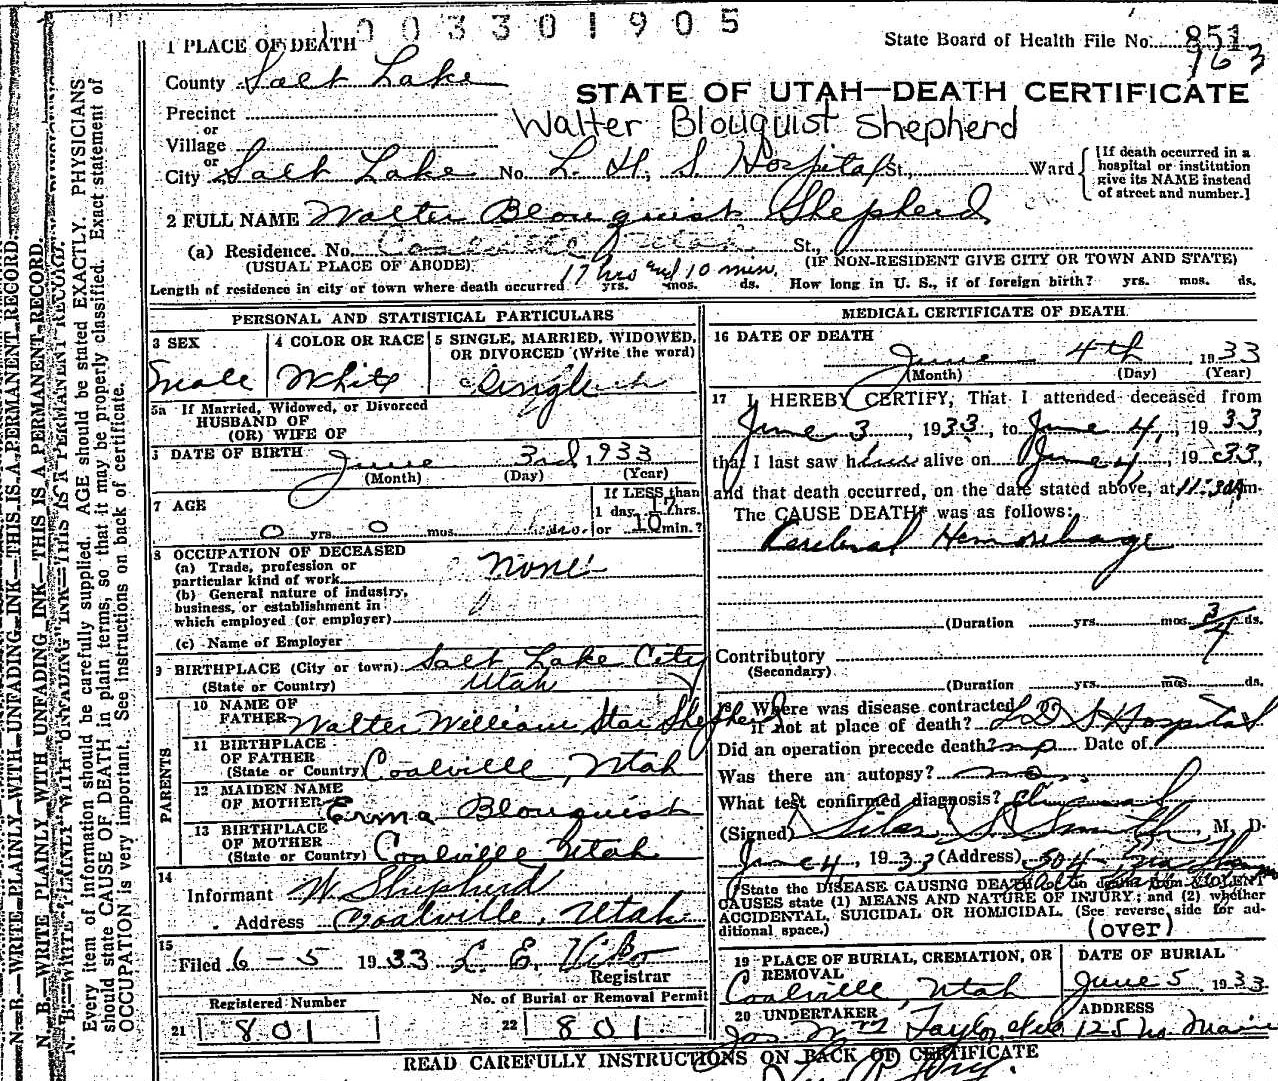 1003301905
State Board of Health File No. 851
163
1 PLACE OF DEATH
County Salt Lake
STATE OF UTAH—DEATH CERTIFICATE
Precinct
Walter Blouquist Shepherd
or
Village
or
City Salt Lake No. L. D. S Hospital St., Ward
[If death occurred in a hospital or institution give its NAME instead of street and number.]
2 FULL NAME Walter Blouquist Shepherd
(a) Residence. No. Coalville Utah St.,
(USUAL PLACE OF ABODE) (IF NON-RESIDENT GIVE CITY OR TOWN AND STATE)
17 hrs and 10 min.
Length of residence in city or town where death occurred yrs. mos. ds. How long in U. S., if of foreign birth? yrs. mos. ds.
PERSONAL AND STATISTICAL PARTICULARS
3 SEX
male
4 COLOR OR RACE
White
5 SINGLE, MARRIED, WIDOWED, OR DIVORCED (Write the word)
Single
5a If Married, Widowed, or Divorced
HUSBAND OF
(OR) WIFE OF
DATE OF BIRTH June 3rd, 1933
(Month) (Day) (Year)
7 AGE
0 yrs. 0 mos.
If LESS than
1 day, 17 hrs.
or 10 min.?
8 OCCUPATION OF DECEASED
(a) Trade, profession or
particular kind of work none
(b) General nature of industry,
business, or establishment in
which employed (or employer)
(c) Name of Employer
9 BIRTHPLACE (City or town) Salt Lake City
(State or Country) Utah
PARENTS
10 NAME OF
FATHER Walter William Star Shepherd
11 BIRTHPLACE
OF FATHER
(State or Country) Coalville, Utah
12 MAIDEN NAME
OF MOTHER Erma Blouquist
13 BIRTHPLACE
OF MOTHER
(State or Country) Coalville Utah
14
Informant W Shepherd
Address Coalville, Utah
15
Filed 6-5 1933
Registrar
Registered Number
21 801
No. of Burial or Removal Permit
22 801
MEDICAL CERTIFICATE OF DEATH
16 DATE OF DEATH
June 4th, 1933
(Month) (Day) (Year)
17 I HEREBY CERTIFY, That I attended deceased from
June 3, 1933, to June 4, 1933,
that I last saw him alive on June 4, 1933,
and that death occurred, on the date stated above, at 11:30 Am.
The CAUSE DEATH* was as follows:
Cerebral Hemorrhage
(Duration yrs. mos. 3/4 ds.
Contributory
(Secondary)
(Duration yrs. mos. ds.
Where was disease contracted
if not at place of death? L D S Hospital
Did an operation precede death? no Date of
Was there an autopsy? no.
What test confirmed diagnosis?
(Signed) Silas S. Smith, M. D.
June 4, 1933 (Address)
*State the DISEASE CAUSING DEATH, or in deaths from VIOLENT
CAUSES state (1) MEANS AND NATURE OF INJURY; and (2) whether
ACCIDENTAL, SUICIDAL OR HOMICIDAL. (See reverse side for additional space.)
(over)
19 PLACE OF BURIAL, CREMATION, OR
REMOVAL
Coalville, Utah
DATE OF BURIAL
June 5 1933
20 UNDERTAKER
Taylor
ADDRESS
125 No. Main
READ CAREFULLY INSTRUCTIONS ON BACK OF CERTIFICATE
N. B.—WRITE PLAINLY WITH UNFADING INK—THIS IS A PERMANENT RECORD.
N. B.—WRITE PLAINLY WITH UNFADING INK—THIS IS A PERMANENT RECORD.
N. B.—WRITE PLAINLY WITH UNFADING INK—THIS IS A PERMANENT RECORD.
Every item of information should be carefully supplied. AGE should be stated EXACTLY. PHYSICIANS
should state CAUSE OF DEATH in plain terms, so that it may be properly classified. Exact statement of
OCCUPATION is very important. See instructions on back of certificate.